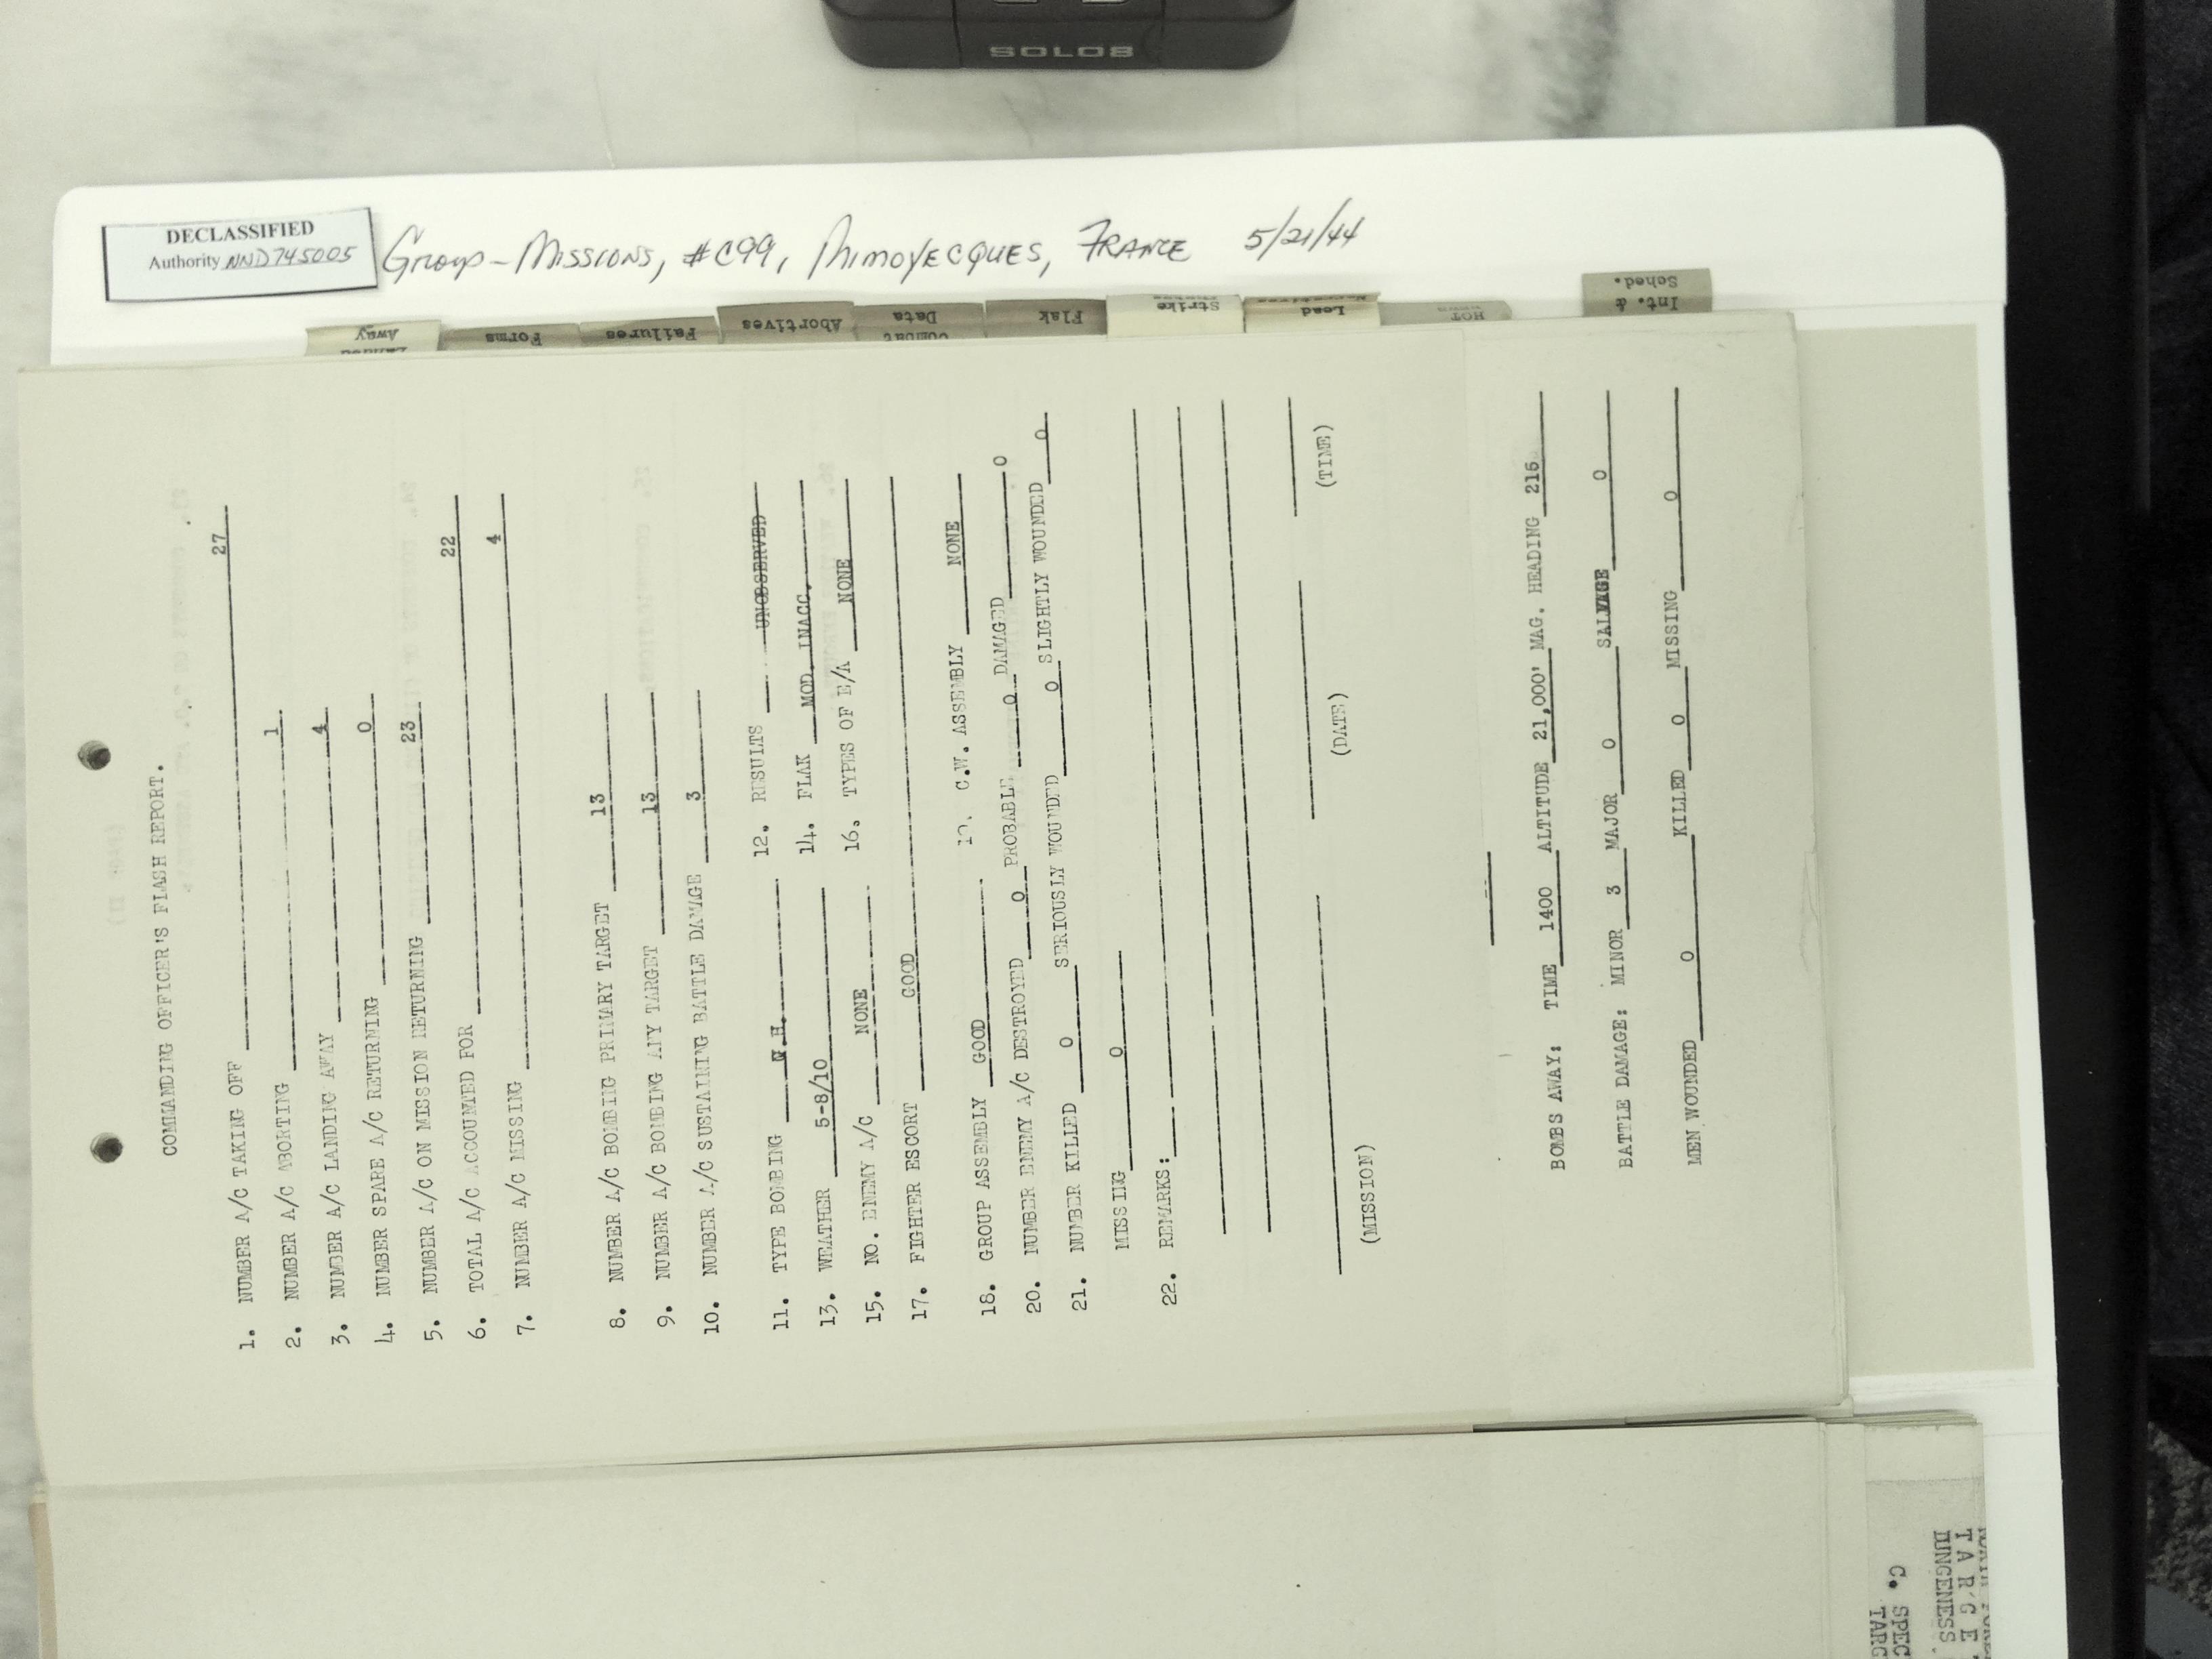 SOLO8
DECLASSIFIED
Authority NND745005
Group-Missions, #C99, Mimoyecques, France 5/21/44
Away
Forms
Failures
Abortives
Combat
Data
Flak
Strike
Lead
HOT
Int. &
Sched.
COMMANDING OFFICER'S FLASH REPORT.
1. NUMBER A/C TAKING OFF 27
2. NUMBER A/C ABORTING 1
3. NUMBER A/C LANDING AWAY 4
4. NUMBER SPARE A/C RETURNING 0
5. NUMBER A/C ON MISSION RETURNING 23
6. TOTAL A/C ACCOUNTED FOR 22
7. NUMBER A/C MISSING 4
8. NUMBER A/C BOMBING PRIMARY TARGET 13
9. NUMBER A/C BOMBING ANY TARGET 13
10. NUMBER A/C SUSTAINING BATTLE DAMAGE 3
11. TYPE BOMBING G.H. 12. RESULTS UNOBSERVED
13. WEATHER 5-8/10 14. FLAK MOD. INACC.
15. NO. ENEMY A/C NONE 16. TYPES OF E/A NONE
17. FIGHTER ESCORT GOOD
18. GROUP ASSEMBLY GOOD 19. C.W. ASSEMBLY NONE
20. NUMBER ENEMY A/C DESTROYED 0 PROBABLE 0 DAMAGED 0
21. NUMBER KILLED 0 SERIOUSLY WOUNDED 0 SLIGHTLY WOUNDED 0
MISSING 0
22. REMARKS:
(MISSION) (DATE) (TIME)
BOMBS AWAY: TIME 1400 ALTITUDE 21,000' MAG. HEADING 216
BATTLE DAMAGE: MINOR 3 MAJOR 0 SALVAGE 0
MEN WOUNDED 0 KILLED 0 MISSING 0
TARGE
DUNGENESS
C. SPEC
TARG